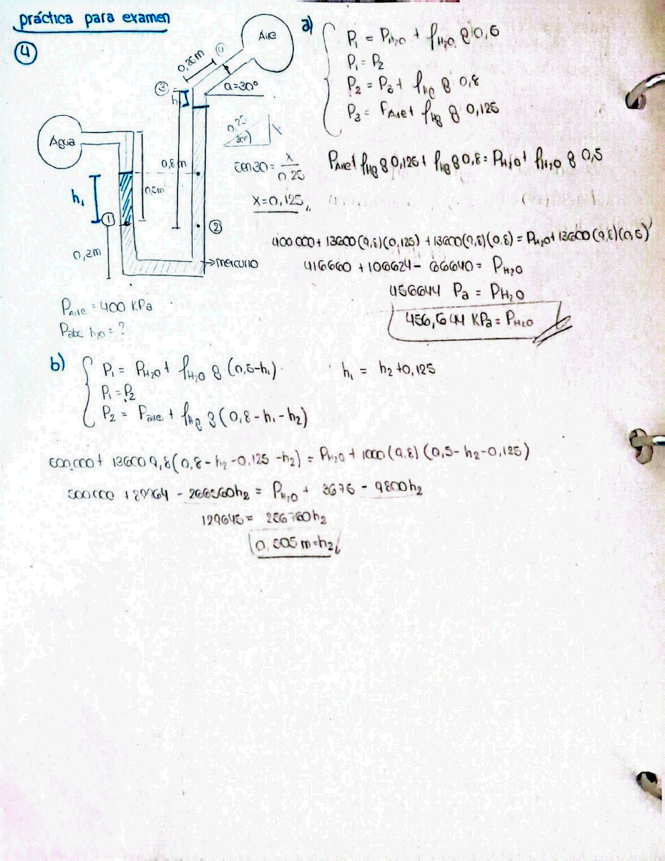 práctica para examen
4
Aire
0,25m
4
3
α=30°
h₂
Agua
0,8m
0,5m
h₁
1
2
0,2m
mercurio
0,25
30°
x
sen30 = x / 0.25
x=0,125
P_Aire = 400 KPa
P_abs h₂o = ?
a)
P₁ = P_H₂O + ρ_H₂O g 0,5
P₁ = P₂
P₂ = P₃ + ρ_Hg g 0,8
P₃ = P_Aire + ρ_Hg g 0,125
P_Aire + ρ_Hg g 0,125 + ρ_Hg g 0,8 = P_H₂O + ρ_H₂O g 0,5
400 000 + 13600(9,8)(0,125) + 13600(9,8)(0,8) = P_H₂O + 13600(9,8)(0,5)
416660 + 106624 - 66640 = P_H₂O
456644 Pa = P_H₂O
456,644 KPa = P_H₂O
b)
P₁ = P_H₂O + ρ_H₂O g (0,5-h₁)
h₁ = h₂+0,125
P₁ = P₂
P₂ = P_aire + ρ_Hg g (0,8 - h₁ - h₂)
500,000 + 13600 9,8(0,8 - h₂ - 0,125 - h₂) = P_H₂O + 1000(9,8) (0,5 - h₂ - 0,125)
500 000 + 89964 - 266560h₂ = P_H₂O + 3675 - 9800h₂
129645 = 256760h₂
0,505 m = h₂